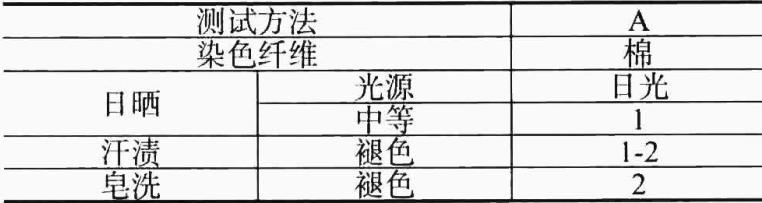 测试方法 A
染色纤维 棉
日晒 光源 日光
中等 1
汗渍 褪色 1-2
皂洗 褪色 2